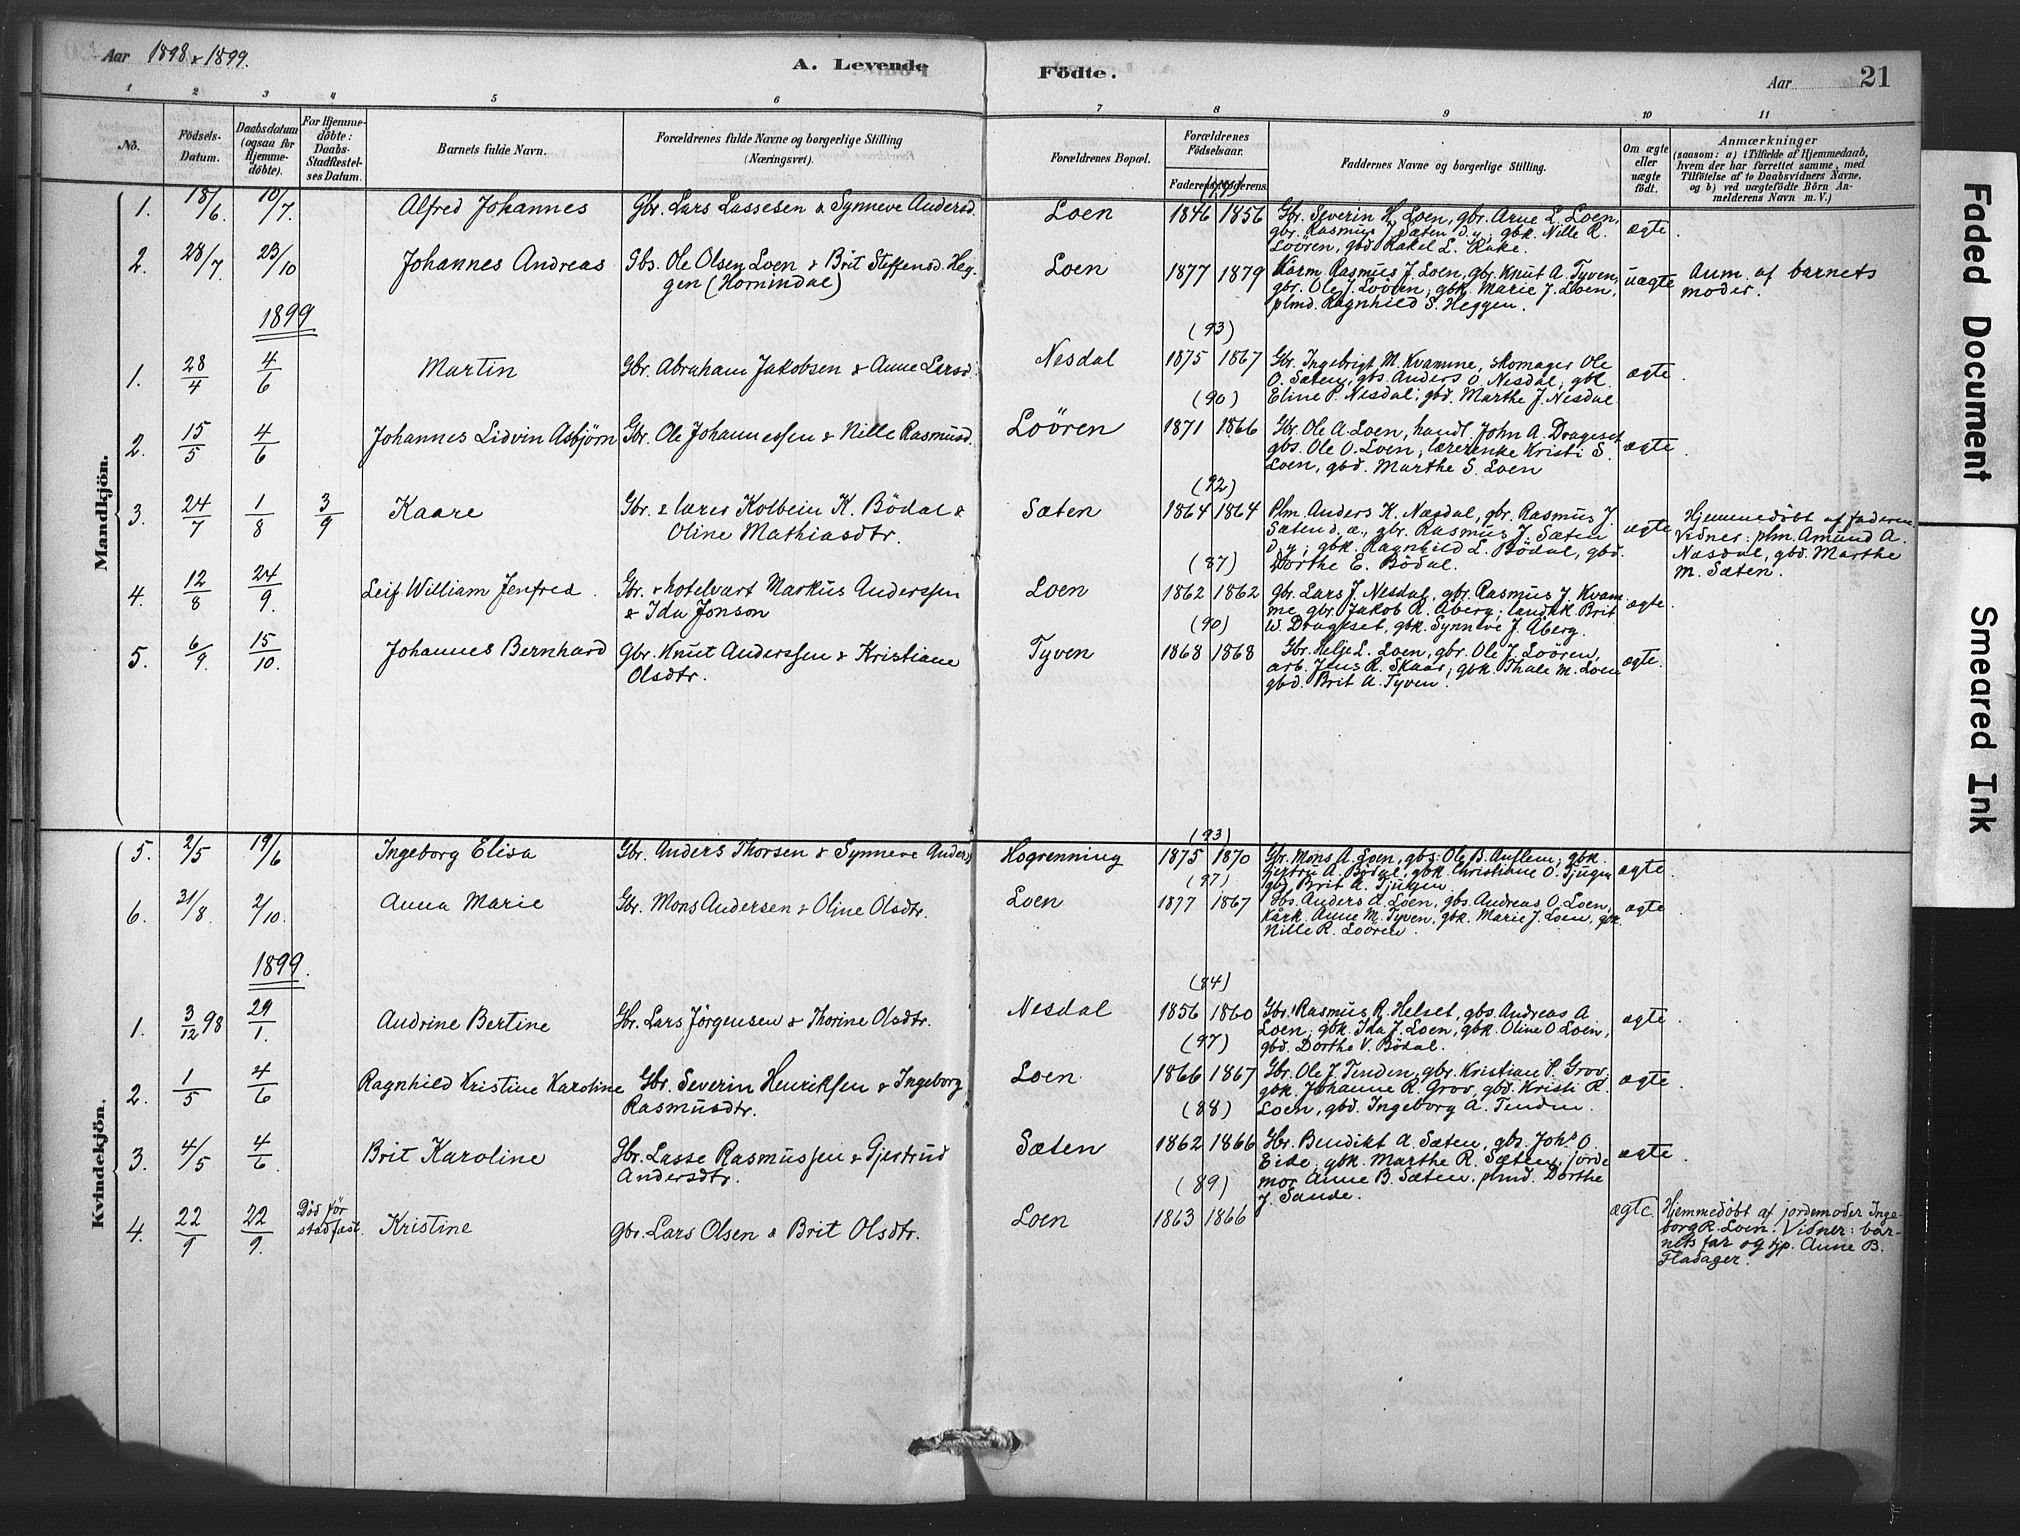 Aar 1898 & 1899.
A. Levende Födte.
Aar 21
1 2 3 4 5 6 7 8 9 10 11
No.
Födsels-Datum.
Daabsdatum (ogsaa for Hjemme-döbte).
For Hjemme-döbte: Daabs-Stadfæstel-ses Datum.
Barnets fulde Navn.
Forældrenes fulde Navne og borgerlige Stilling (Næringsvei).
Forældrenes Bopæl.
Forældrenes Födselsaar.
Faderens. Moderens.
Faddernes Navne og borgerlige Stilling.
Om ægte eller uægte födt.
Anmærkninger
(saasom: a) i Tilfælde af Hjemmedaab,
hvem der har forrettet samme, med
Tilföielse af to Daabsvidners Navne,
og b) ved uægtefödte Börn An-
melderens Navn m. V.)
Mandkjön.
1. 18/6. 10/7. Alfred Johannes Gbr. Lars Lassesen & Synneve Andersd. Loen 1846 1856 Gbr. Severin H. Loen, gbr. Arne L. Loen,
gbr. Rasmus J. Sæten d.y.; gbk. Nille R.
Loören, gbd. Rakel L. Rake. ægte.
2. 28/7. 23/10 Johannes Andreas Gbs. Ole Olsen Loen & Brit Steffensd. Heg-
gen (Hornindal) Loen 1877 1879 Kårm. Rasmus J. Loen, gbr. Knut A. Tyven,
gbr. Ole J. Loören; gbk. Marie J. Loen,
plmd. Ragnhild S. Heggen. uægte Anm. af barnets
moder.
1899
(93)
1. 28/4 4/6 Martin Gbr. Abraham Jakobsen & Anne Larsd. Nesdal 1875 1867 Gbr. Ingebrigt M. Kvamme, skomager Ole
O. Sæten, gbs. Anders O. Nesdal; gbk.
Eline P. Nesdal; gbd. Marthe J. Nesdal ægte.
(90)
2. 15/5 4/6 Johannes Lidvin Asbjørn Gbr. Ole Johannessen & Nille Rasmusd. Loören 1871 1866 Gbr. Ole A. Loen, handl. John A. Drageset
gbs. Ole O. Loen; lærerenke Kristi S.
Loen, gbd. Marthe S. Loen ægte.
(92)
3. 24/7 1/8 3/9 Kaare Gbr. & lærer Kolbein K. Bödal &
Oline Mathiasdtr. Sæten 1864 1864 Plm. Anders K. Næsdal, gbr. Rasmus J.
Sæten d.æ., gbr. Rasmus J. Sæten
d.y.; gbk. Ragnhild L. Bödal, gbd.
Dorthe E. Bödal. ægte Hjemmedöbt af faderen.
Vidner: plm. Amund A.
Næsdal, gbd. Marthe
M. Sæten.
(87)
4. 12/8 24/9. Leif William Jenfred. Gbr. & hotelvært Markus Anderssen
& Ida Jonson Loen 1862 1862 gbr. Lars J. Nesdal, gbr. Rasmus J. Kvam-
me, gbr. Jakob R. Åberg; landhk. Brit
W. Drageset, gbk. Synneve J. Åberg. ægte.
(90)
5. 6/9 15/10. Johannes Bernhard Gbr. Knut Anderssen & Kristiane
Olsdtr. Tyven 1868 1868 Gbr. Helje L. Loen, gbr. Ole J. Loören,
arb. Jens R. Skaar; gbk. Thale M. Loen
gbd. Brit A. Tyven. ægte.
Kvindekjön.
(93)
5. 2/5 19/6 Ingeborg Elisa Gbr. Anders Thorsen & Synneve Andersd Hogrenning 1875 1870 Gbr. Mons A. Loen, gbs. Ole B. Auflem; gbk.
Gjertru A. Bödal, gbk. Christiane O. Tjugen
gbd. Brit A. Tjugen ægte.
(97)
6. 31/8. 2/10. Anna Marie Gbr. Mons Andersen & Oline Olsdtr. Loen 1877 1867 Gbs. Anders A. Loen, gbs. Andreas O. Loen,
kårk. Anne M. Tyven, gbk. Marie J. Loen, gbk.
Nille R. Loören. ægte.
1899.
(84)
1. 3/12 98 29/1. Andrine Bertine Gbr. Lars Jörgensen & Thorine Olsdtr. Nesdal 1856 1860 Gbr. Rasmus R. Helset, gbs. Andreas A.
Loen; gbk. Ida J. Loen, gbk. Oline O. Loen,
gbd. Dorthe V. Bödal. ægte.
(97)
2. 1/5 4/6 Ragnhild Kristine Karoline Gbr. Severin Henriksen & Ingeborg
Rasmusdtr. Loen 1866 1867 Gbr. Ole J. Tinden, gbr. Kristian P. Grov,
gbk. Johanne R. Grov, gbd. Kristi R.
Loen, gbd. Ingeborg A. Tinden. ægte.
(88)
3. 4/5 4/6. Brit Karoline Gbr. Lasse Rasmussen & Gjertrud
Andersdtr. Sæten 1862 1866 Gbr. Bendikt A. Sæten, gbs. Johs O.
Eide; gbk. Marthe R. Sæten, jorde
mor Anne B. Sæten. plmd. Dorthe
J. Sande. ægte.
(89)
4. 22/9 22/9. Död för
stadfæst. Kristine gbr. Lars Olsen & Brit Olsdtr. Loen 1863 1866 ægte. Hjemmedöbt af jordemoder Inge-
borg R. Loen. Vidner: bar-
nets far og tjp. Anne B.
Fladager.
Faded Document
Smeared Ink